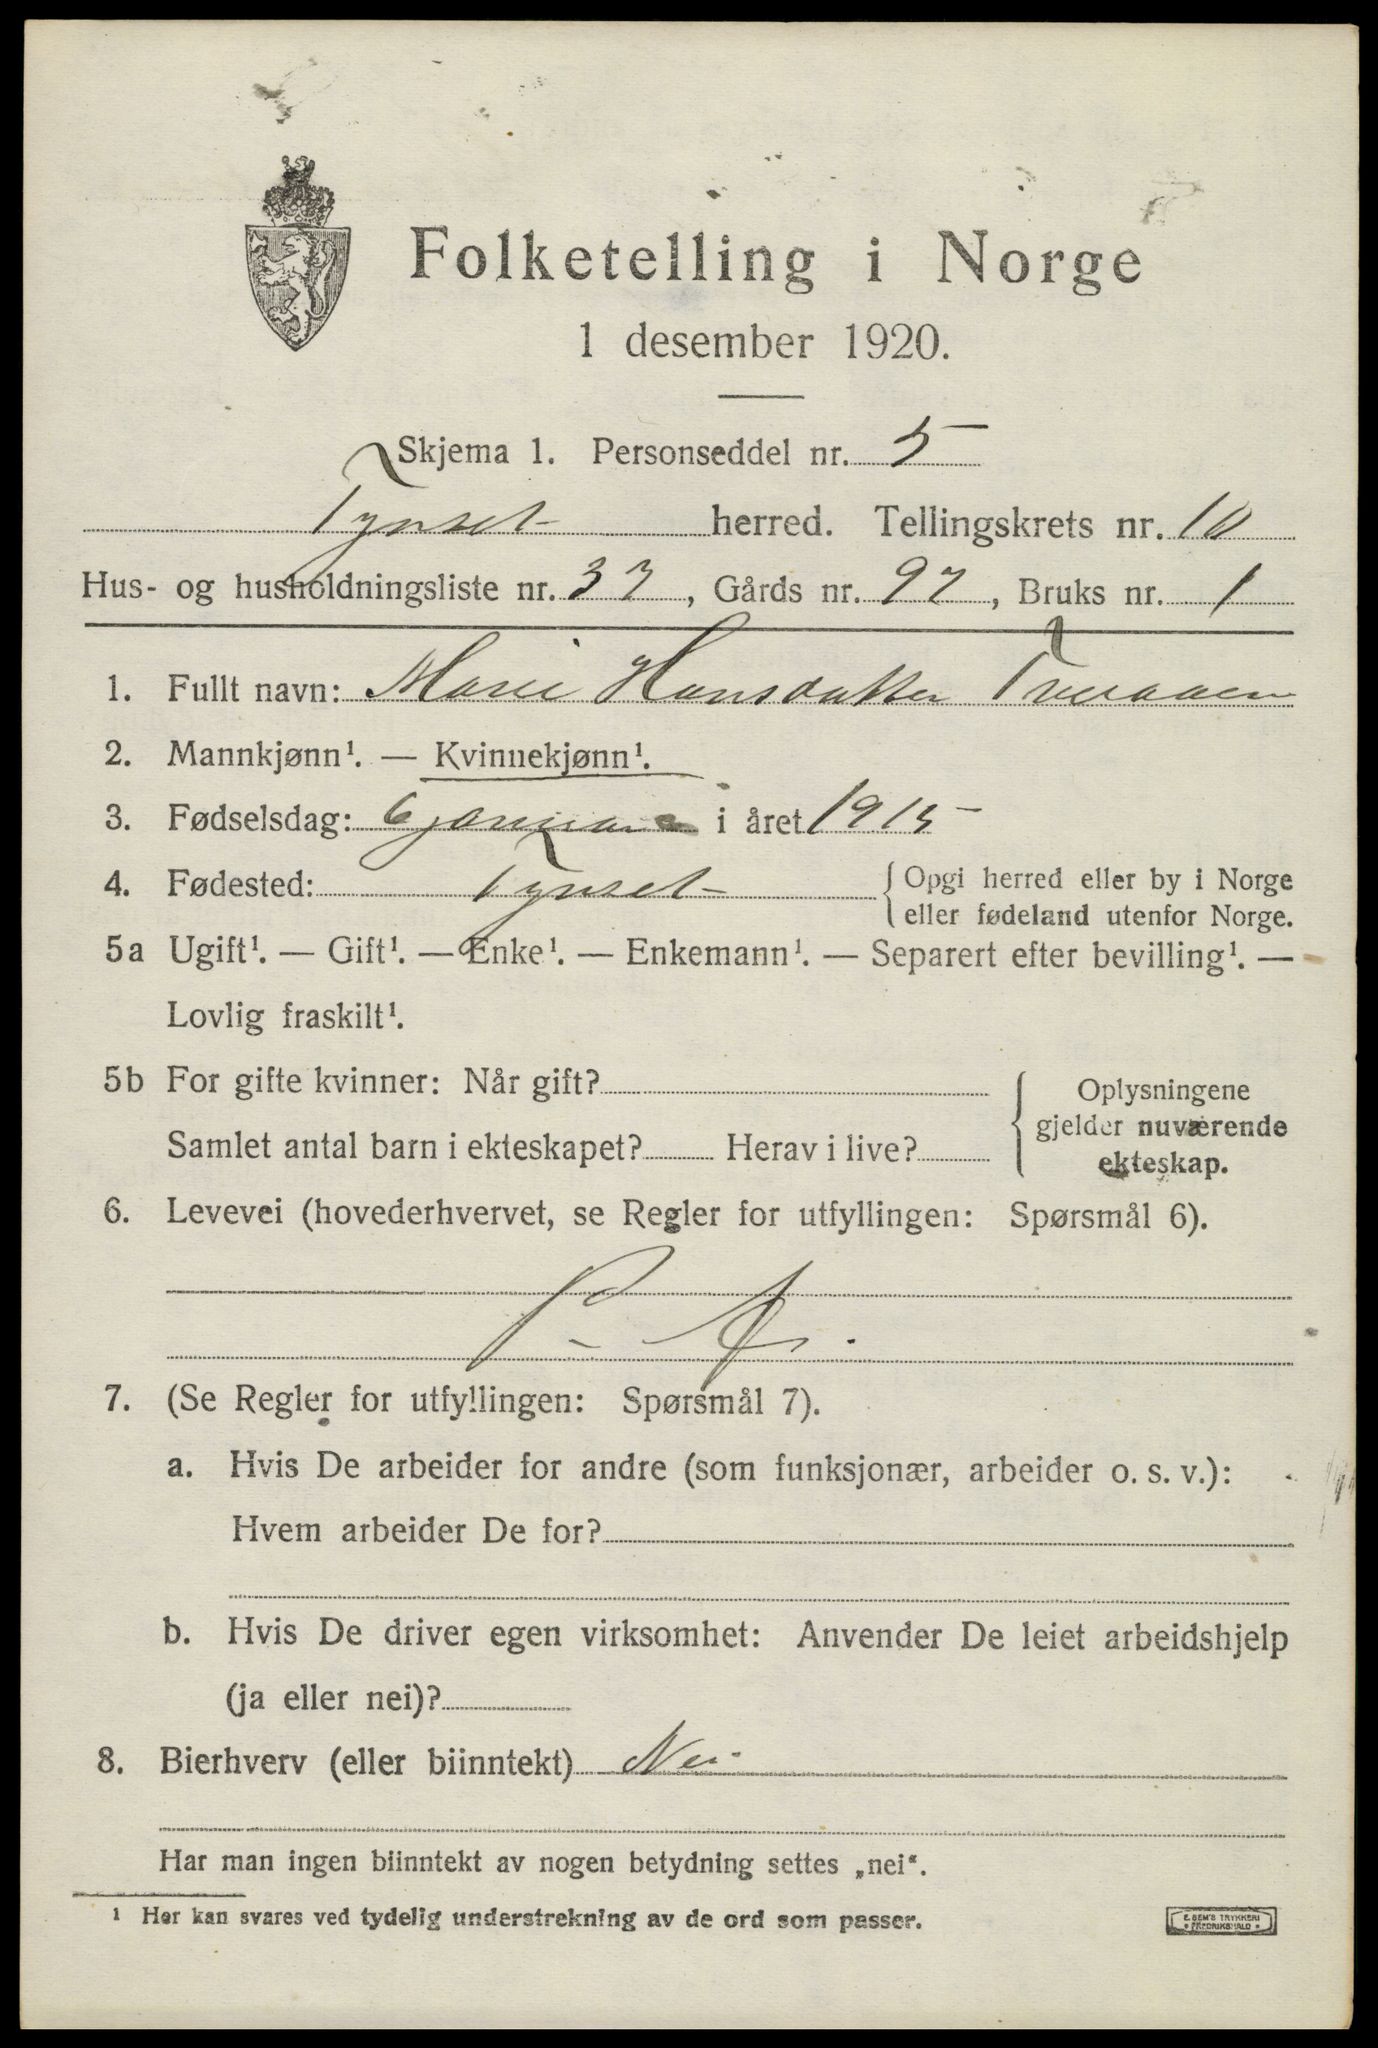 Folketelling i Norge
1 desember 1920.
Skjema 1. Personseddel nr. 5
Tynset herred. Tellingskrets nr. 10
Hus- og husholdningsliste nr. 37, Gårds nr. 97, Bruks nr. 1
1. Fullt navn: Marie Hansdatter Tveraaen
2. Mannkjønn¹. — Kvinnekjønn¹.
3. Fødselsdag: 6 januar i året 1915
4. Fødested: Tynset { Opgi herred eller by i Norge
eller fødeland utenfor Norge.
5a Ugift¹. — Gift¹. — Enke¹. — Enkemann¹. — Separert efter bevilling¹. —
Lovlig fraskilt¹.
5b For gifte kvinner: Når gift? { Oplysningene
gjelder nuværende
Samlet antal barn i ekteskapet? Herav i live?
ekteskap.
6. Levevei (hovederhvervet, se Regler for utfyllingen: Spørsmål 6).
7. (Se Regler for utfyllingen: Spørsmål 7).
a. Hvis De arbeider for andre (som funksjonær, arbeider o. s. v.):
Hvem arbeider De for?
b. Hvis De driver egen virksomhet: Anvender De leiet arbeidshjelp
(ja eller nei)?
8. Bierhverv (eller biinntekt) Nei
Har man ingen biinntekt av nogen betydning settes „nei“.
¹ Her kan svares ved tydelig understrekning av de ord som passer.
E. SEM'S TRYKKERI
FREDRIKSHALD